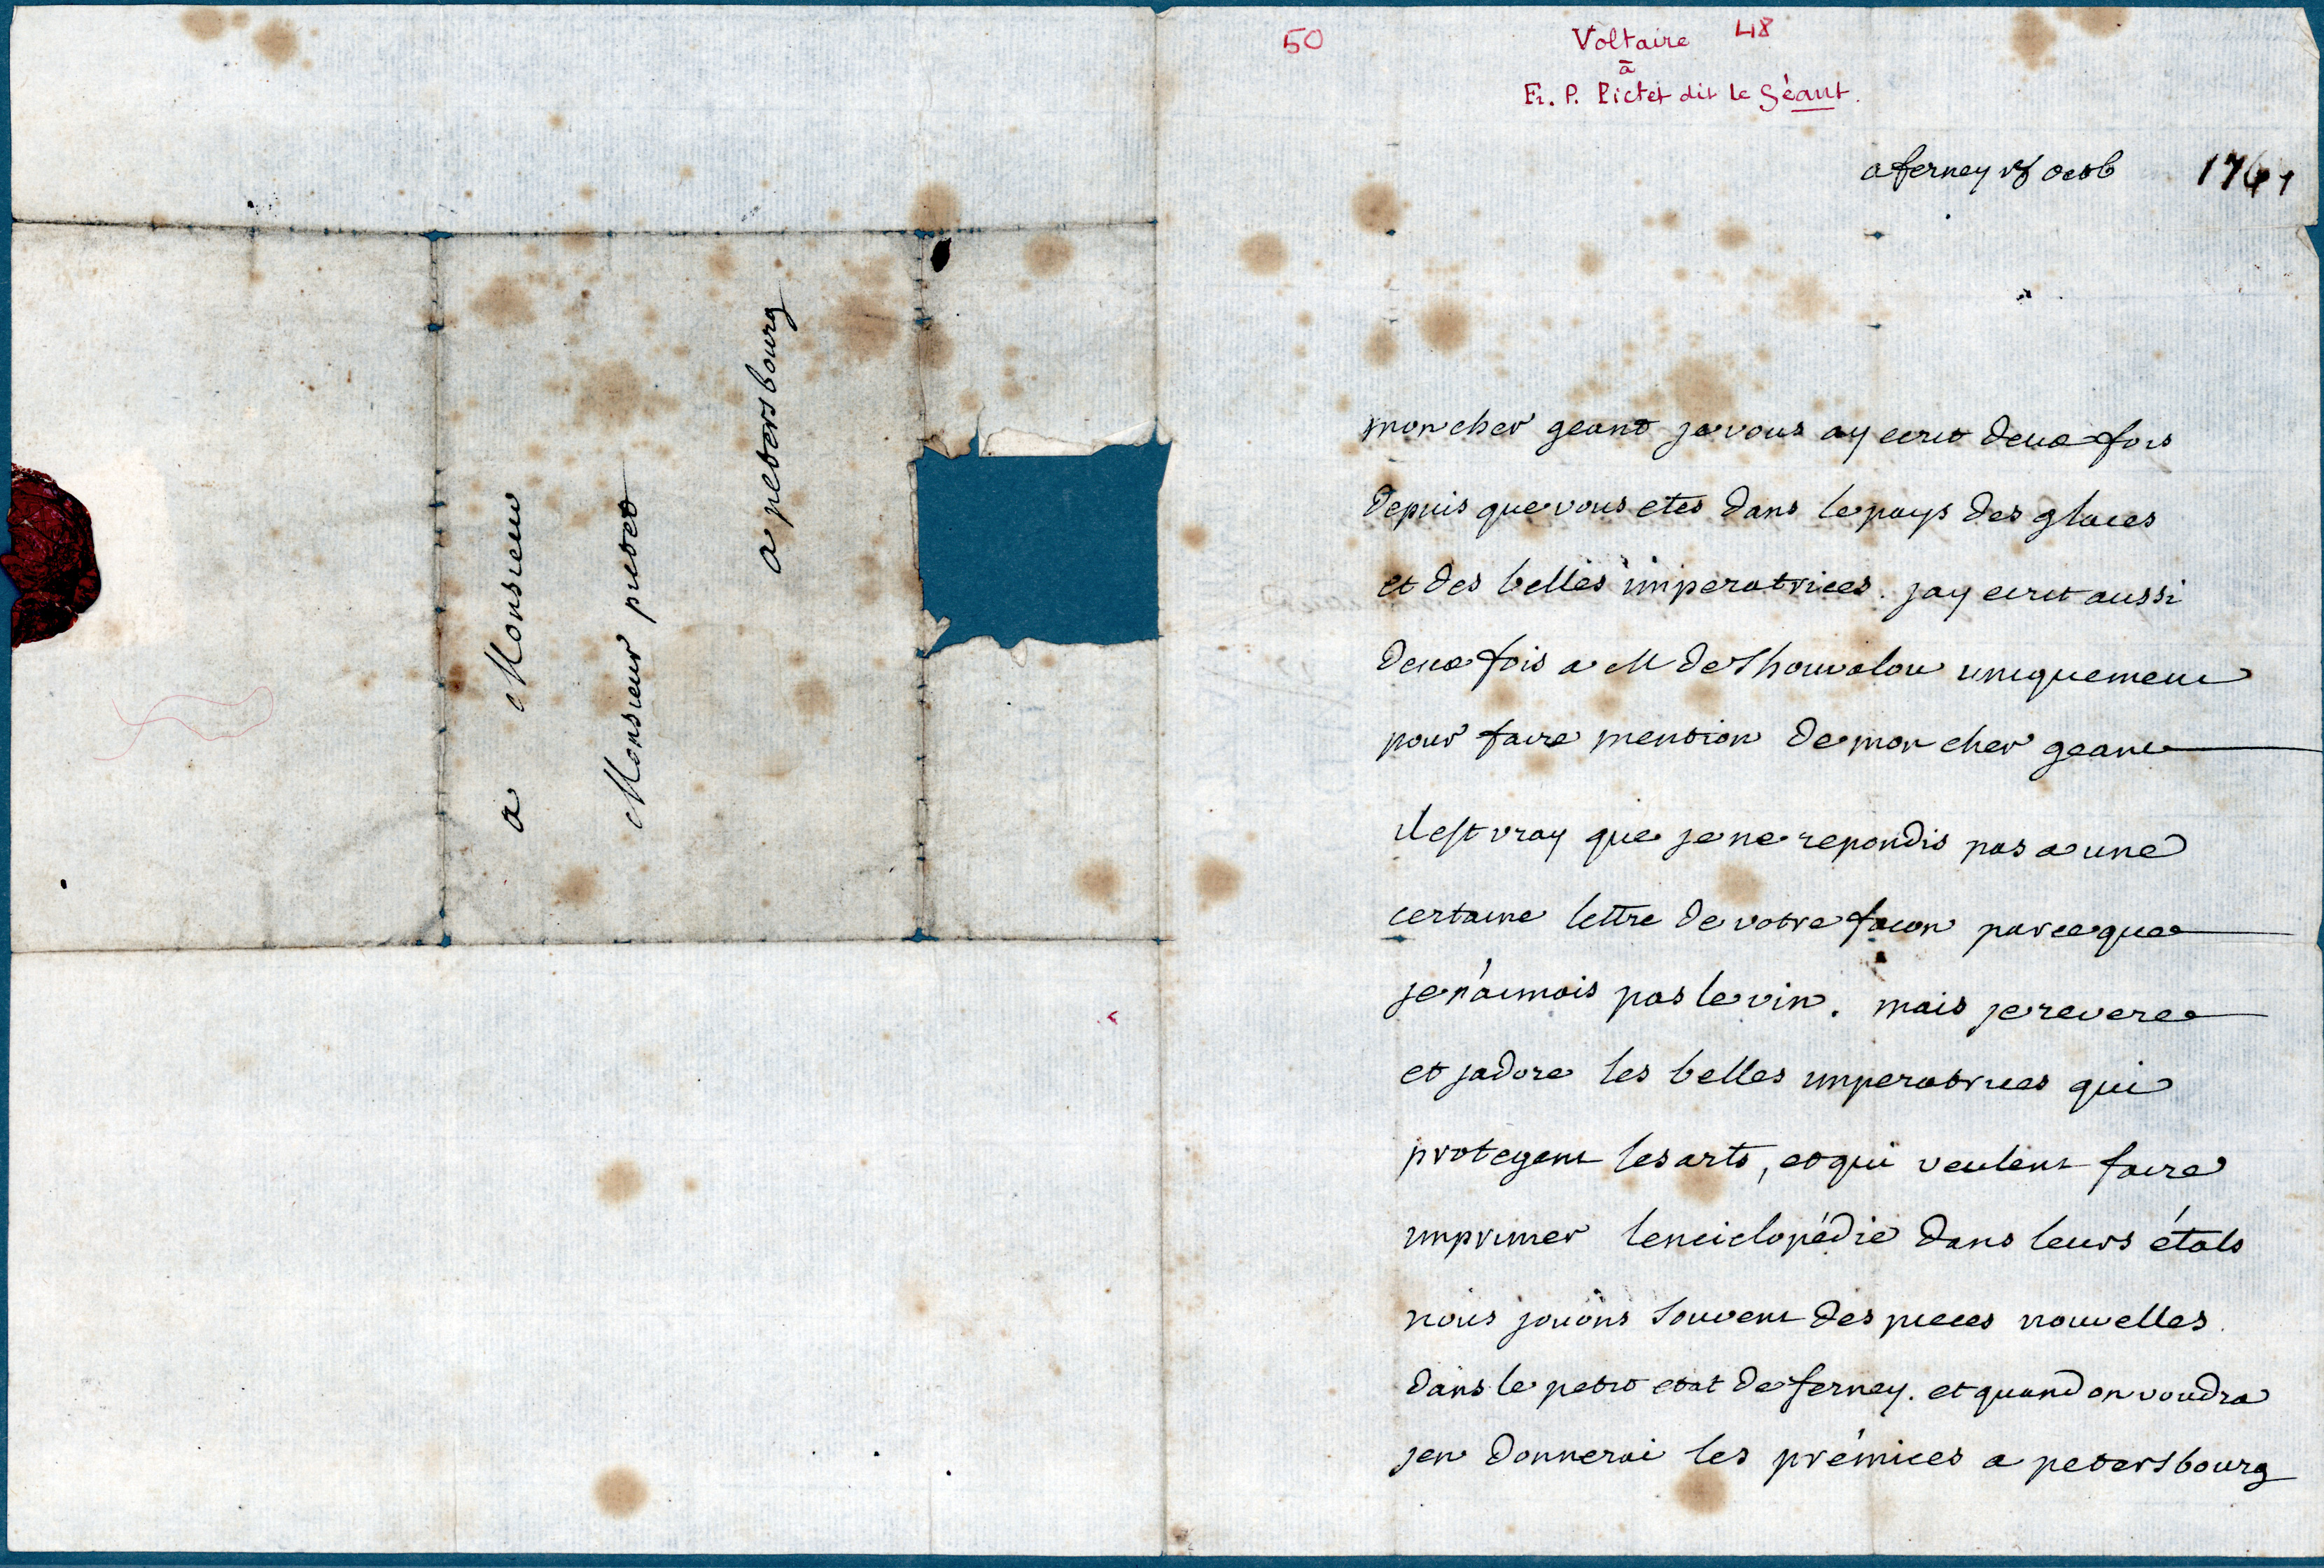 a Monsieur
Monsieur pictet
a petersbourg
50
Voltaire 48
à
Fr. P. Pictet dit le Géant.
a ferney octob 1761
mon cher geant je vous ay ecrit deux fois
depuis que vous etes dans le pays des glaces
et des belles imperatrices. jay ecrit aussi
deux fois a M de Shouvalou uniquement
pour faire mention de mon cher geant
il est vray que je ne repondis pas a une
certaine lettre de votre facon parce que
je n'aimois pas le vin. mais je revere
et jadore les belles imperatrices qui
protegent les arts, et qui veulent faire
imprimer lenciclopédie dans leurs états
nous jouons souvent des pieces nouvelles.
dans le petit etat de ferney. et quand on voudra
jen donnerai les prémices a petersbourg